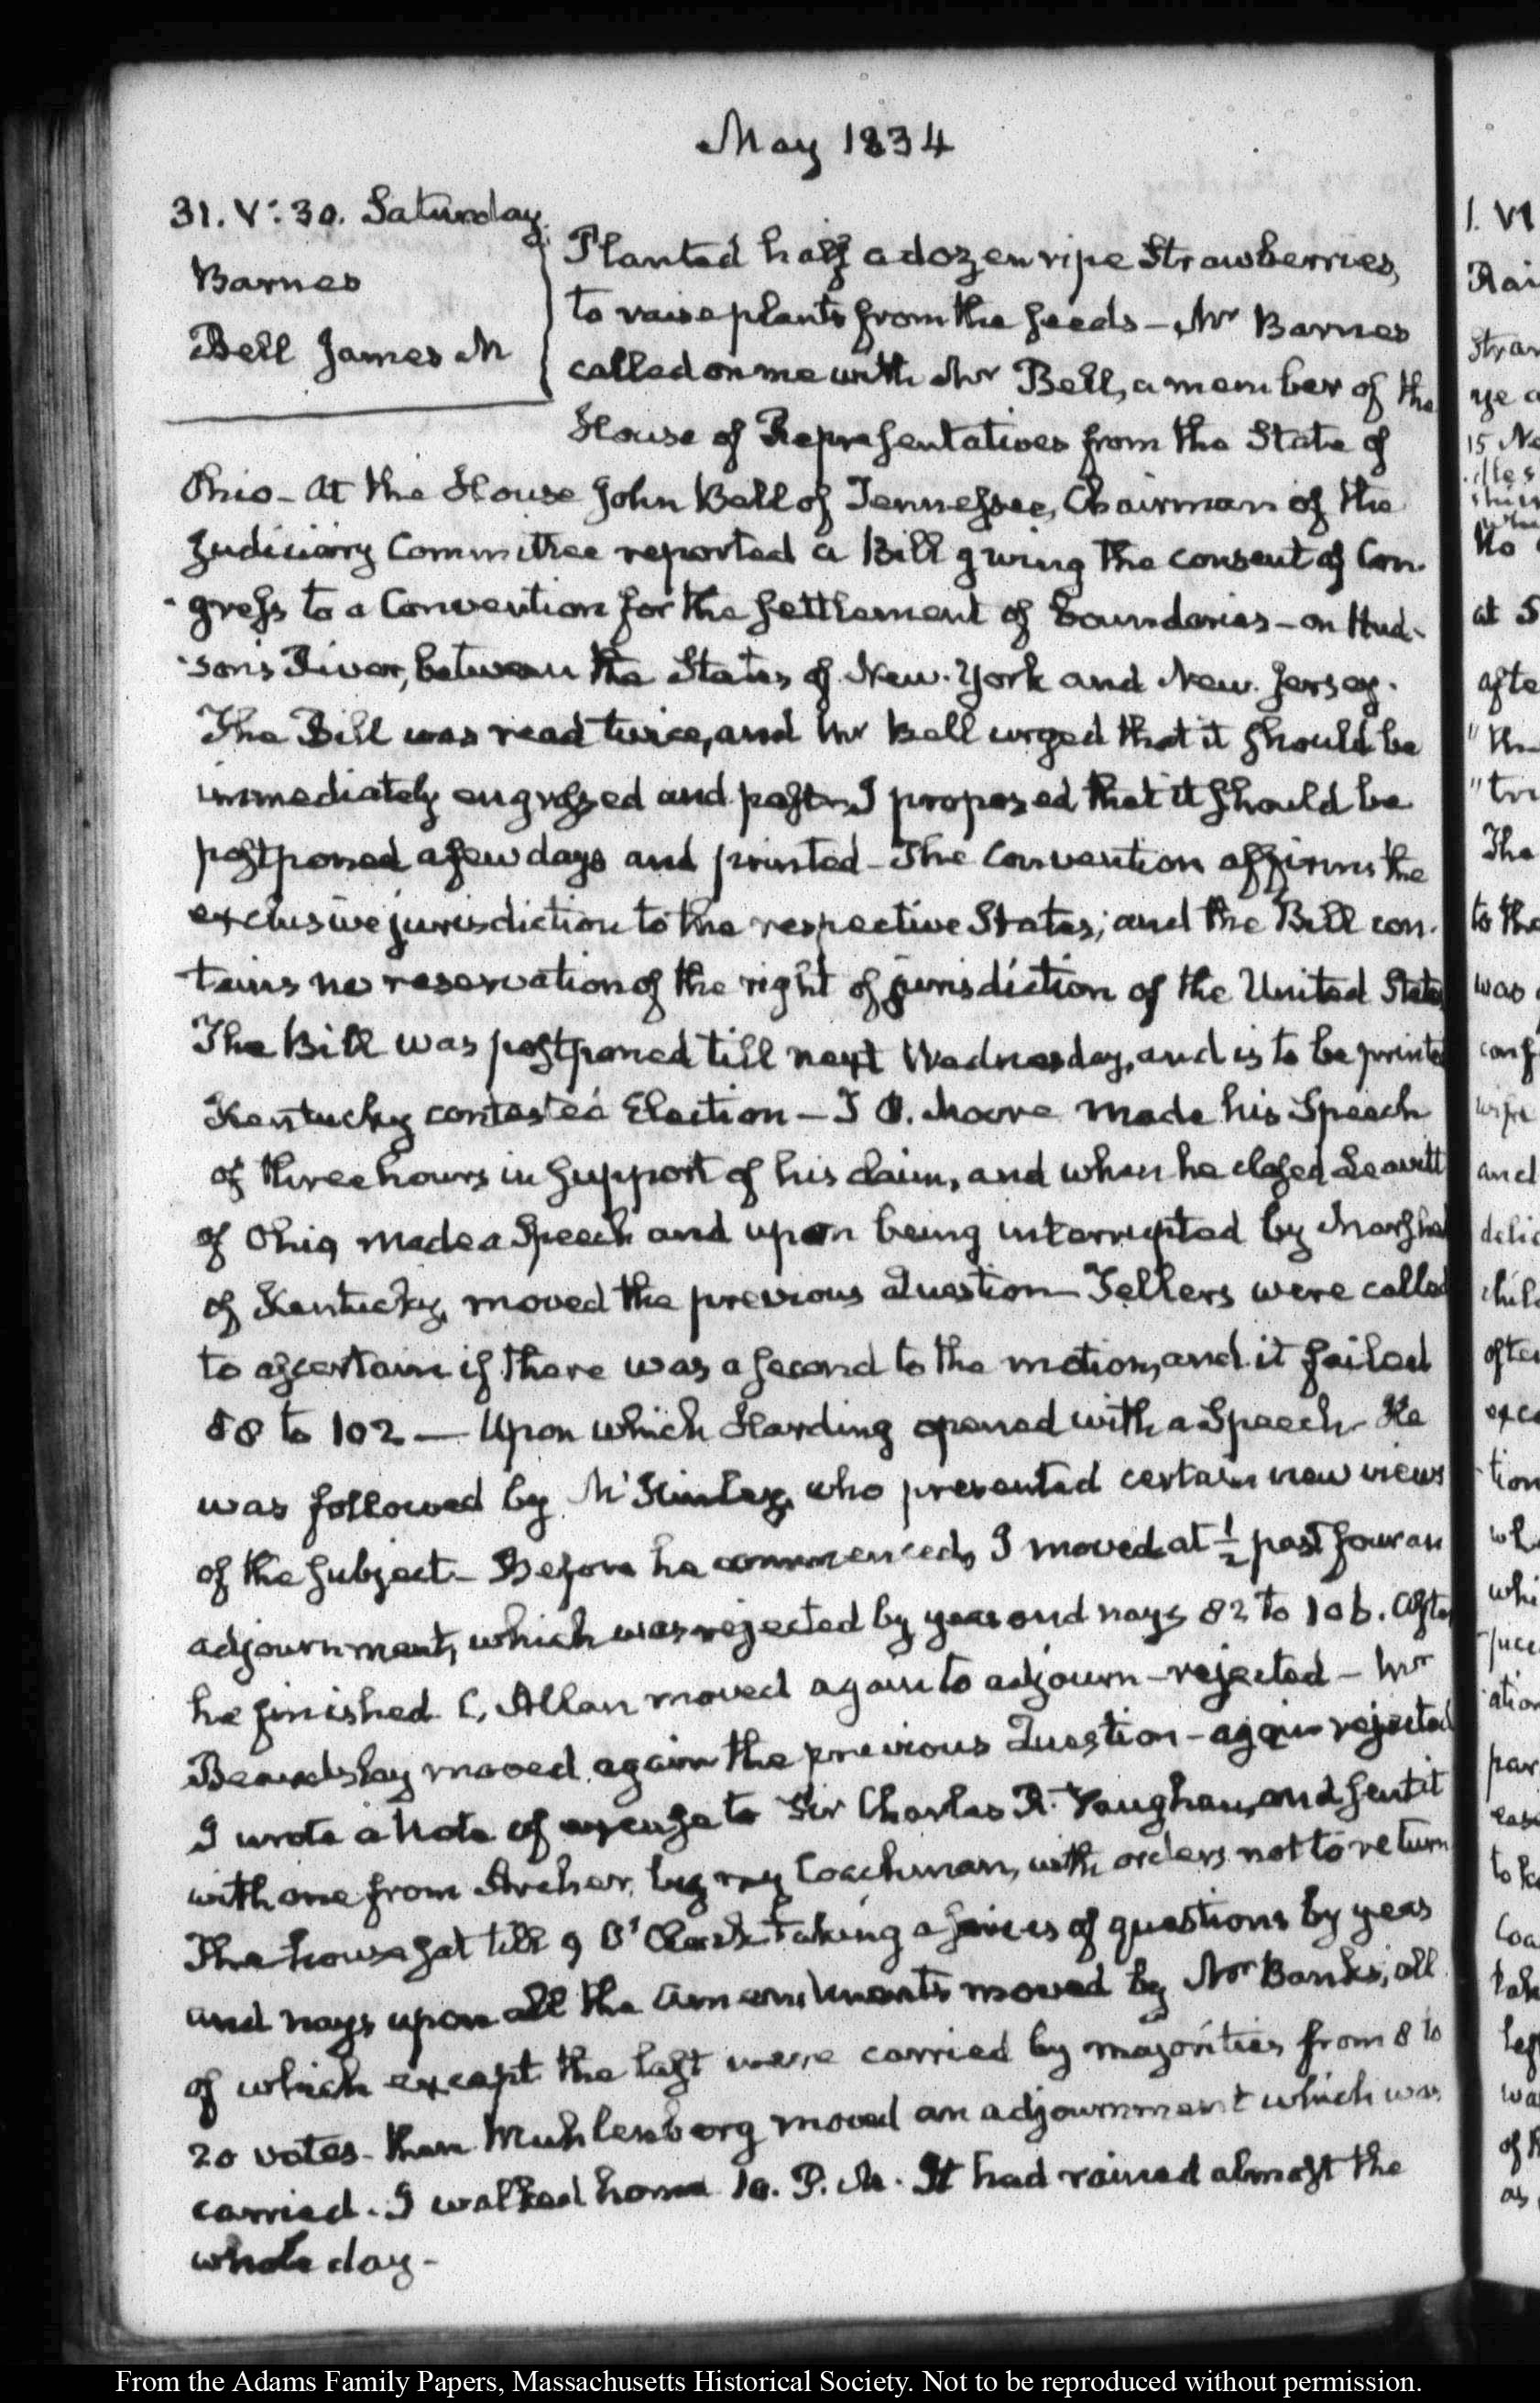 May 1834
31. V:30. Saturday.
Barnes
Bell James M
Planted half a dozen ripe Strawberries,
to raise plants from the seeds – Mr Barnes
called on me with Mr Bell, a member of the
House of Representatives from the State of
Ohio – At the House John Bell of Tennessee, Chairman of the
Judiciary Committee reported a Bill giving the consent of Con-
-gress to a Convention for the settlement of boundaries – on Hud-
-son's River, between the States of New-York and New-Jersey.
The Bill was read twice, and Mr Bell urged that it should be
immediately engrossed and past. I proposed that it should be
postponed a few days and printed – The Convention affirms the
exclusive jurisdiction to the respective States; and the Bill con-
tains no reservation of the right of jurisdiction of the United States
The Bill was postponed till next Wednesday, and is to be printed
Kentucky contested Election – T. P. Moore made his Speech
of three hours in support of his claim, and when he closed Leavitt
of Ohio, made a Speech and upon being interrupted by Marshall
of Kentucky, moved the previous Question – Tellers were called
to ascertain if there was a second to the motion, and it failed
88 to 102 — Upon which Harding opened with a Speech – He
was followed by M'Kinley, who presented certain new views
of the subject – Before he commenced, I moved at ½ past four an
adjournment, which was rejected by yeas and nays 82 to 106. After
he finished C. Allan moved again to adjourn – rejected – Mr
Beardsley moved again the previous Question – again rejected
I wrote a Note of excuse to Sir Charles R. Vaughan, and sent it
with one from Archer, by my Coachman, with orders not to return
The house sat till 9 O'Clock taking a series of questions by yeas
and nays upon all the amendments moved by Mr Banks; all
of which except the last were carried by majorities from 8 to
20 votes – then Muhlenberg moved an adjournment which was
carried. I walked home 10. P. M. It had rained almost the
whole day –
From the Adams Family Papers, Massachusetts Historical Society. Not to be reproduced without permission.